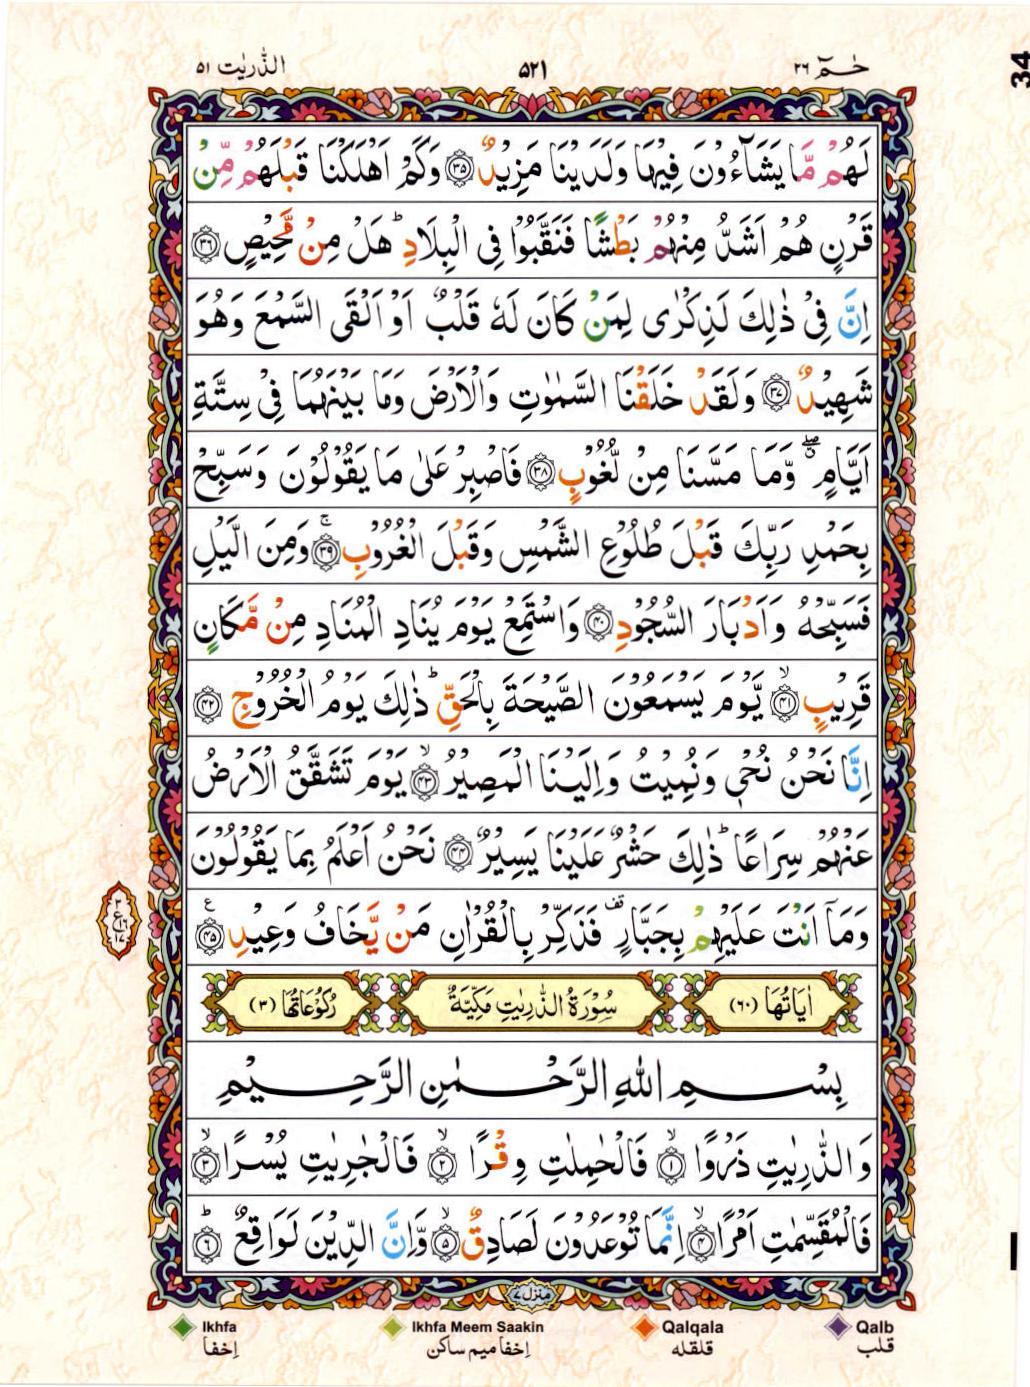 الذّٰریٰت ۵۱
۵۲۱
حٰمٓ ۲۶
34
لَهُمْ مَّا يَشَآءُوْنَ فِيْهَا وَلَدَيْنَا مَزِيْدٌ ۝۳۵ وَكَمْ اَهْلَكْنَا قَبْلَهُمْ مِّنْ
قَرْنٍ هُمْ اَشَدُّ مِنْهُمْ بَطْشًا فَنَقَّبُوْا فِى الْبِلَادِ ؕ هَلْ مِنْ مَّحِيْصٍ ۝۳۶
اِنَّ فِىْ ذٰلِكَ لَذِكْرٰى لِمَنْ كَانَ لَهٗ قَلْبٌ اَوْ اَلْقَى السَّمْعَ وَهُوَ
شَهِيْدٌ ۝۳۷ وَلَقَدْ خَلَقْنَا السَّمٰوٰتِ وَالْاَرْضَ وَمَا بَيْنَهُمَا فِىْ سِتَّةِ
اَيَّامٍ ۖۗ وَّمَا مَسَّنَا مِنْ لُّغُوْبٍ ۝۳۸ فَاصْبِرْ عَلٰى مَا يَقُوْلُوْنَ وَسَبِّحْ
بِحَمْدِ رَبِّكَ قَبْلَ طُلُوْعِ الشَّمْسِ وَقَبْلَ الْغُرُوْبِ ۝۳۹ۚ وَمِنَ الَّيْلِ
فَسَبِّحْهُ وَاَدْبَارَ السُّجُوْدِ ۝۴۰ وَاسْتَمِعْ يَوْمَ يُنَادِ الْمُنَادِ مِنْ مَّكَانٍ
قَرِيْبٍ ۝۴۱ۙ يَّوْمَ يَسْمَعُوْنَ الصَّيْحَةَ بِالْحَقِّ ؕ ذٰلِكَ يَوْمُ الْخُرُوْجِ ۝۴۲
اِنَّا نَحْنُ نُحْىٖ وَنُمِيْتُ وَاِلَيْنَا الْمَصِيْرُ ۝۴۳ۙ يَوْمَ تَشَقَّقُ الْاَرْضُ
عَنْهُمْ سِرَاعًا ؕ ذٰلِكَ حَشْرٌ عَلَيْنَا يَسِيْرٌ ۝۴۴ نَحْنُ اَعْلَمُ بِمَا يَقُوْلُوْنَ
وَمَآ اَنْتَ عَلَيْهِمْ بِجَبَّارٍ قف فَذَكِّرْ بِالْقُرْاٰنِ مَنْ يَّخَافُ وَعِيْدِ ۝۴۵ ع
۳
ع ۱۶
۱۷
اٰيَاتُهَا (۶۰)
سُوْرَةُ الذّٰرِيٰتِ مَكِّيَّةٌ
رُكُوْعَاتُهَا (۳)
بِسْمِ اللهِ الرَّحْمٰنِ الرَّحِيْمِ
وَالذّٰرِيٰتِ ذَرْوًا ۝۱ۙ فَالْحٰمِلٰتِ وِقْرًا ۝۲ۙ فَالْجٰرِيٰتِ يُسْرًا ۝۳ۙ
فَالْمُقَسِّمٰتِ اَمْرًا ۝۴ۙ اِنَّمَا تُوْعَدُوْنَ لَصَادِقٌ ۝۵ۙ وَّاِنَّ الدِّيْنَ لَوَاقِعٌ ۝۶ؕ
منزل ۷
Ikhfa
اِخفا
Ikhfa Meem Saakin
اِخفا ميم ساكن
Qalqala
قلقله
Qalb
قلب